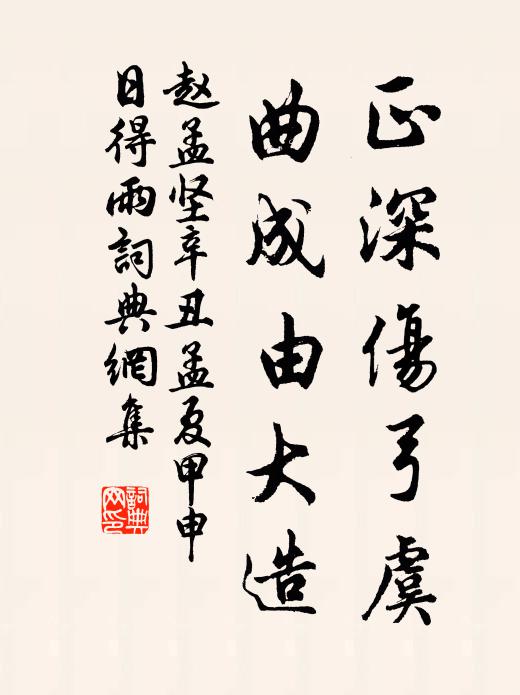 正深傷弓虞
曲成由大造
赵孟坚辛丑孟夏甲申
日得雨詞典網集
詞典
网印